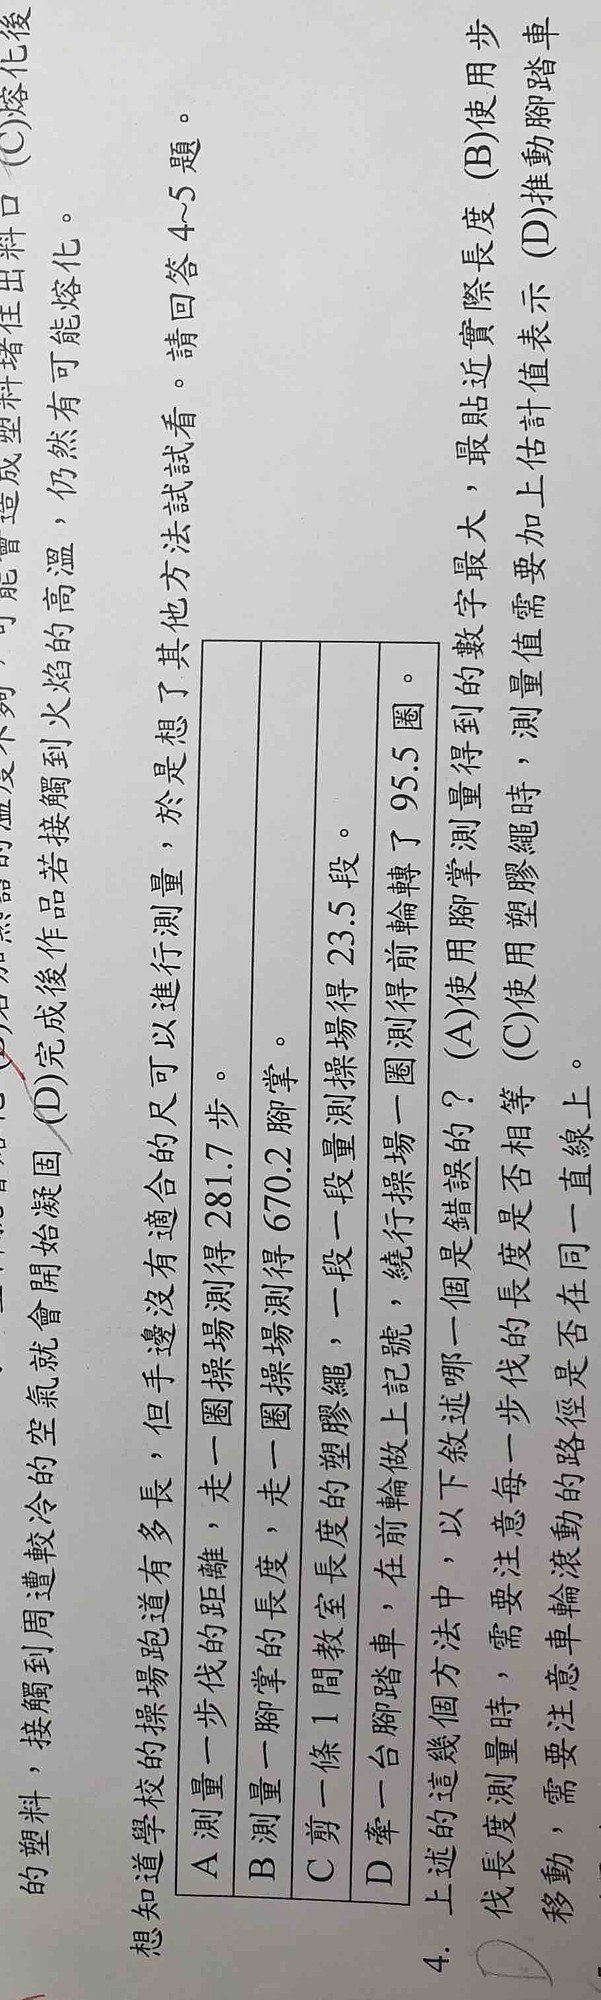 可能會造成塑料堵住出料口 (C)熔化後
的塑料，接觸到周遭較冷的空氣就會開始凝固 (D)完成後作品若接觸到火焰的高溫，仍然有可能熔化。
想知道學校的操場跑道有多長，但手邊沒有適合的尺可以進行測量，於是想了其他方法試試看。請回答 4~5 題。
A 測量一步伐的距離，走一圈操場測得 281.7 步。
B 測量一腳掌的長度，走一圈操場測得 670.2 腳掌。
C 剪一條 1 間教室長度的塑膠繩，一段一段量測操場得 23.5 段。
D 牽一台腳踏車，在前輪做上記號，繞行操場一圈測得前輪轉了 95.5 圈。
4. 上述的這幾個方法中，以下敘述哪一個是錯誤的？ (A)使用腳掌測量得到的數字最大，最貼近實際長度 (B)使用步
D 伐長度測量時，需要注意每一步伐的長度是否相等 (C)使用塑膠繩時，測量值需要加上估計值表示 (D)推動腳踏車
移動，需要注意車輪滾動的路徑是否在同一直線上。